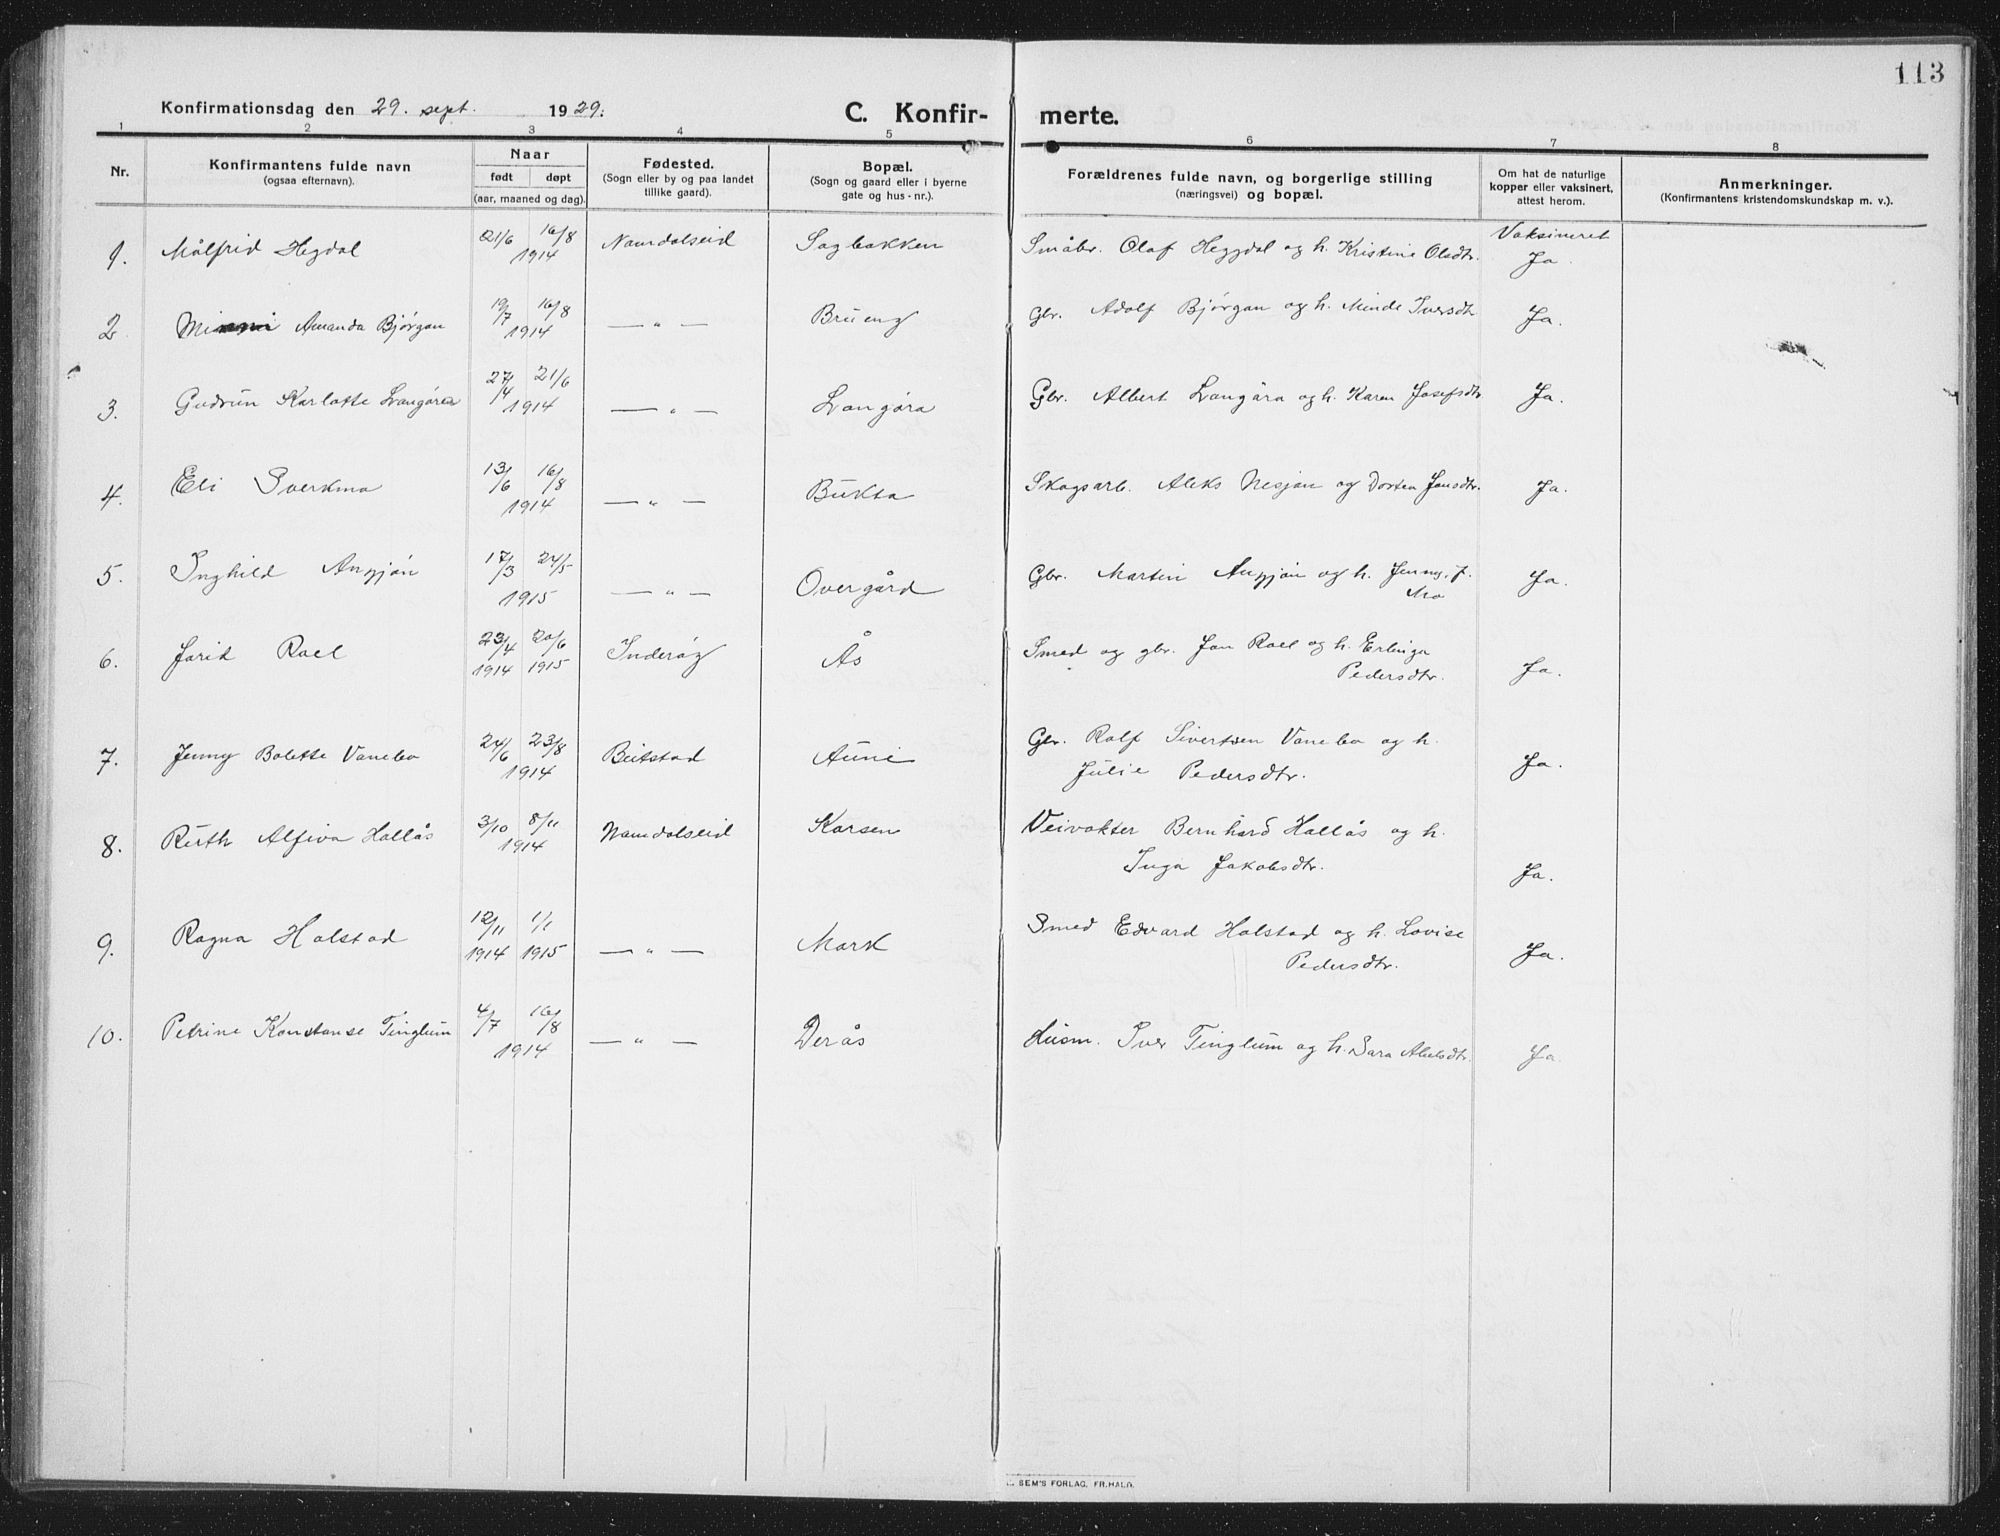 113
Konfirmationsdag den 29. sept. 1929. C. Konfir- merte.
1 2 3 4 5 6 7 8
Nr.
Konfirmantens fulde navn
(ogsaa efternavn).
Naar
født døpt
(aar, maaned og dag).
Fødested.
(Sogn eller by og paa landet
tillike gaard).
Bopæl.
(Sogn og gaard eller i byerne
gate og hus-nr.).
Forældrenes fulde navn, og borgerlige stilling
(næringsvei) og bopæl.
Om hat de naturlige
kopper eller vaksinert,
attest herom.
Anmerkninger.
(Konfirmantens kristendomskundskap m. v.).
1. Målfrid Hegdal 21/6 16/8 1914 Namdalseid Sagbakken Småbr. Olaf Heggdal og h. Kristine Olsdtr. Vaksineret Ja.
2. Amanda Bjørgan 19/7 16/8 1914 — „ — Brueng Gbr. Adolf Bjørgan og h. Minde Iversdtr Ja.
3. Gudrun Karlotte Langåra 27/4 21/6 1914 — „ — Langåra Gbr. Albert Langåra og h. Karen Josefsdtr Ja.
4. Eli Sverkmo 13/6 16/8 1914 — „ — Bukta Skogsarb. Aleks Nesjan og Dortea Jonsdtr. Ja.
5. Inghild 17/3 24/5 1915 — „ — Overgård Gbr. Martin og h. Jenny J.
Mo Ja.
6. Jorid Roel 23/4 1914 20/6 1915 Inderøy Ås Smed og gbr. Jon Roel og h. Erlinga
Pedersdtr. Ja.
7. Jenny Bolette Vanebo 24/6 23/8 1914 Beitstad Aune Gbr. Rolf Sivertsen Vanebo og h.
Julie Pedersdtr. Ja.
8. Ruth Alfiva Hallås 3/10 8/11 1914 Namdalseid Korsen Veivokter Bernhard Hallås og h.
Inga Jakobsdtr. Ja.
9. Ragna Halstad 12/11 1914 1/1 1915 — „ — Mork Smed Edvard Halstad og h. Lovise
Pedersdtr. Ja.
10. Petrine Konstanse Tinglum 4/7 16/8 1914 — „ — Derås Husm. Iver Tinglum og h. Sara Abelsdtr. Ja
SEM'S FORLAG, FR.HALD.